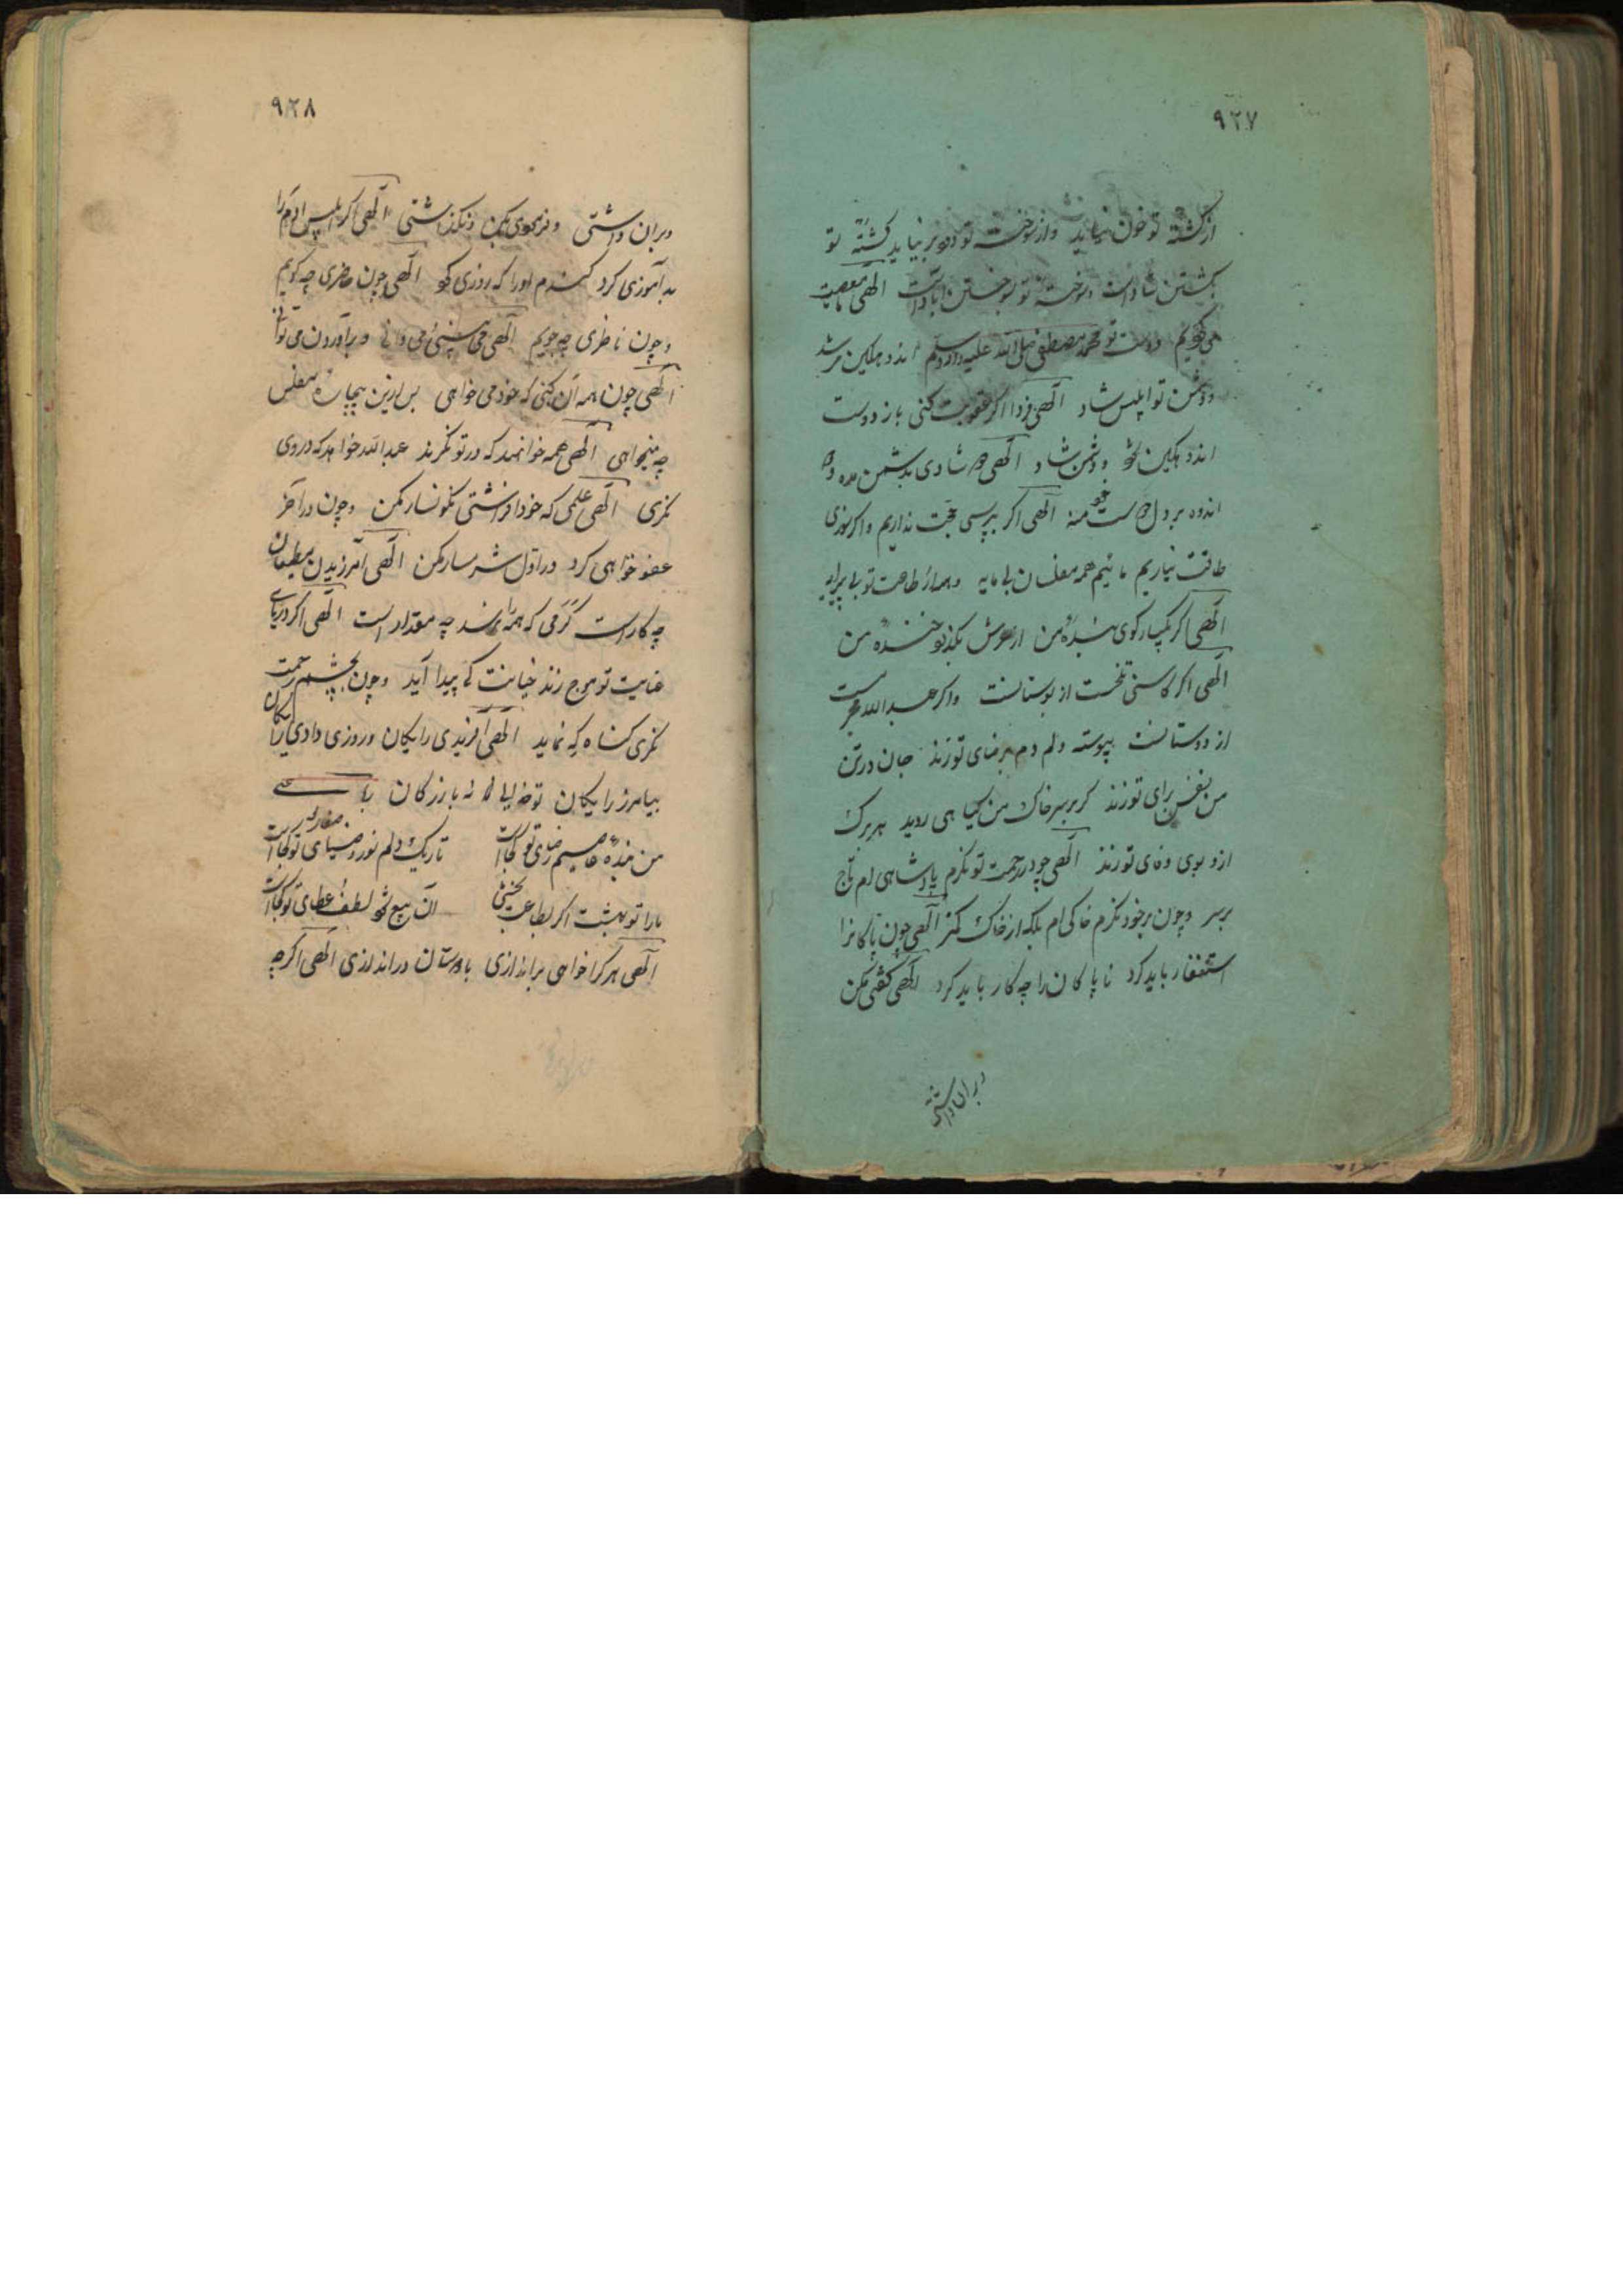 ۹۲۷
از کشته تو خون نیاید و از سوخته تو دود بر نیاید کشته تو
بکشتن شاد است و سوخته تو بسوختن آباد است الهی ما معصیت
می کردیم دوست تو محمد مصطفی صلی الله علیه و آله وسلم اندوهکین می شد
و دشمن تو ابلیس شاد الهی فردا اگر عقوبت کنی باز دوست
اندوهکین شود و دشمن شاد الهی دو شادی بدشمن مده و دو
اندوه بر دل دوست خود منه الهی اگر بپرسی حجت نداریم و اگر بسوزی
طاقت نیاریم مائیم همه مفلسان بی مایه و همه از طاعت تو بی پیرایه
الهی اگر یکبار گوی بنده من از عرش بگذرد خنده من
الهی اگر کاسنی تلخست از بوستانست و اگر عبدالله مجرمست
از دوستانست پیوسته دلم دم برضای تو زند جان در تن
من نفس برای تو زند گر بر سر خاک من گیاهی روید هر برگ
ازو بوی وفای تو زند الهی چو در رحمت تو نگرم پادشاهی ام تاج
بر سر و چون بر خود نگرم خاکی ام بلکه از خاک کمتر الهی چون پاکانرا
استغفار باید کرد ناپاکان را چه کار باید کرد الهی گفتی مکن
و بران داشتی
۹۲۸
و بران داشتی و فرمودی بکن و نگذاشتی الهی اگر ابلیس آدم را
بدآموزی کرد گندم او را که روزی کرد الهی چون حاضری چه گویم
و چون ناظری چه جویم الهی می بینی و می دانی و برآوردن می توانی
الهی چون همه آن کنی که خود می خواهی پس ازین بیچاره مفلس
چه میخواهی الهی همه خوانند که در تو نگرند عبدالله خواهد که در وی
نگری الهی علمی که خود افراشتی نگونسار مکن و چون در آخر
عفو خواهی کرد در اول شرمسار مکن الهی آمرزیدن مطیعان
چه کار است کرمی که همه را نرسد چه مقدار است الهی اگر دریای
عنایت تو موج زند خیانت کی پیدا آید و چون بچشم رحمت
نگری گناه که نماید الهی آفریدی رایگان و روزی دادی رایگان
بیامرز رایگان تو خدایی نه بازرگان رباعی
من بنده عاصیم رضای تو کجاست تاریک دلم نور و ضیای تو کجاست
ما را تو بهشت اگر بطاعت بخشی آن بیع بود لطف و عطای تو کجاست
الهی هر کرا خواهی براندازی با دوستان دراندازی الهی اگر چه